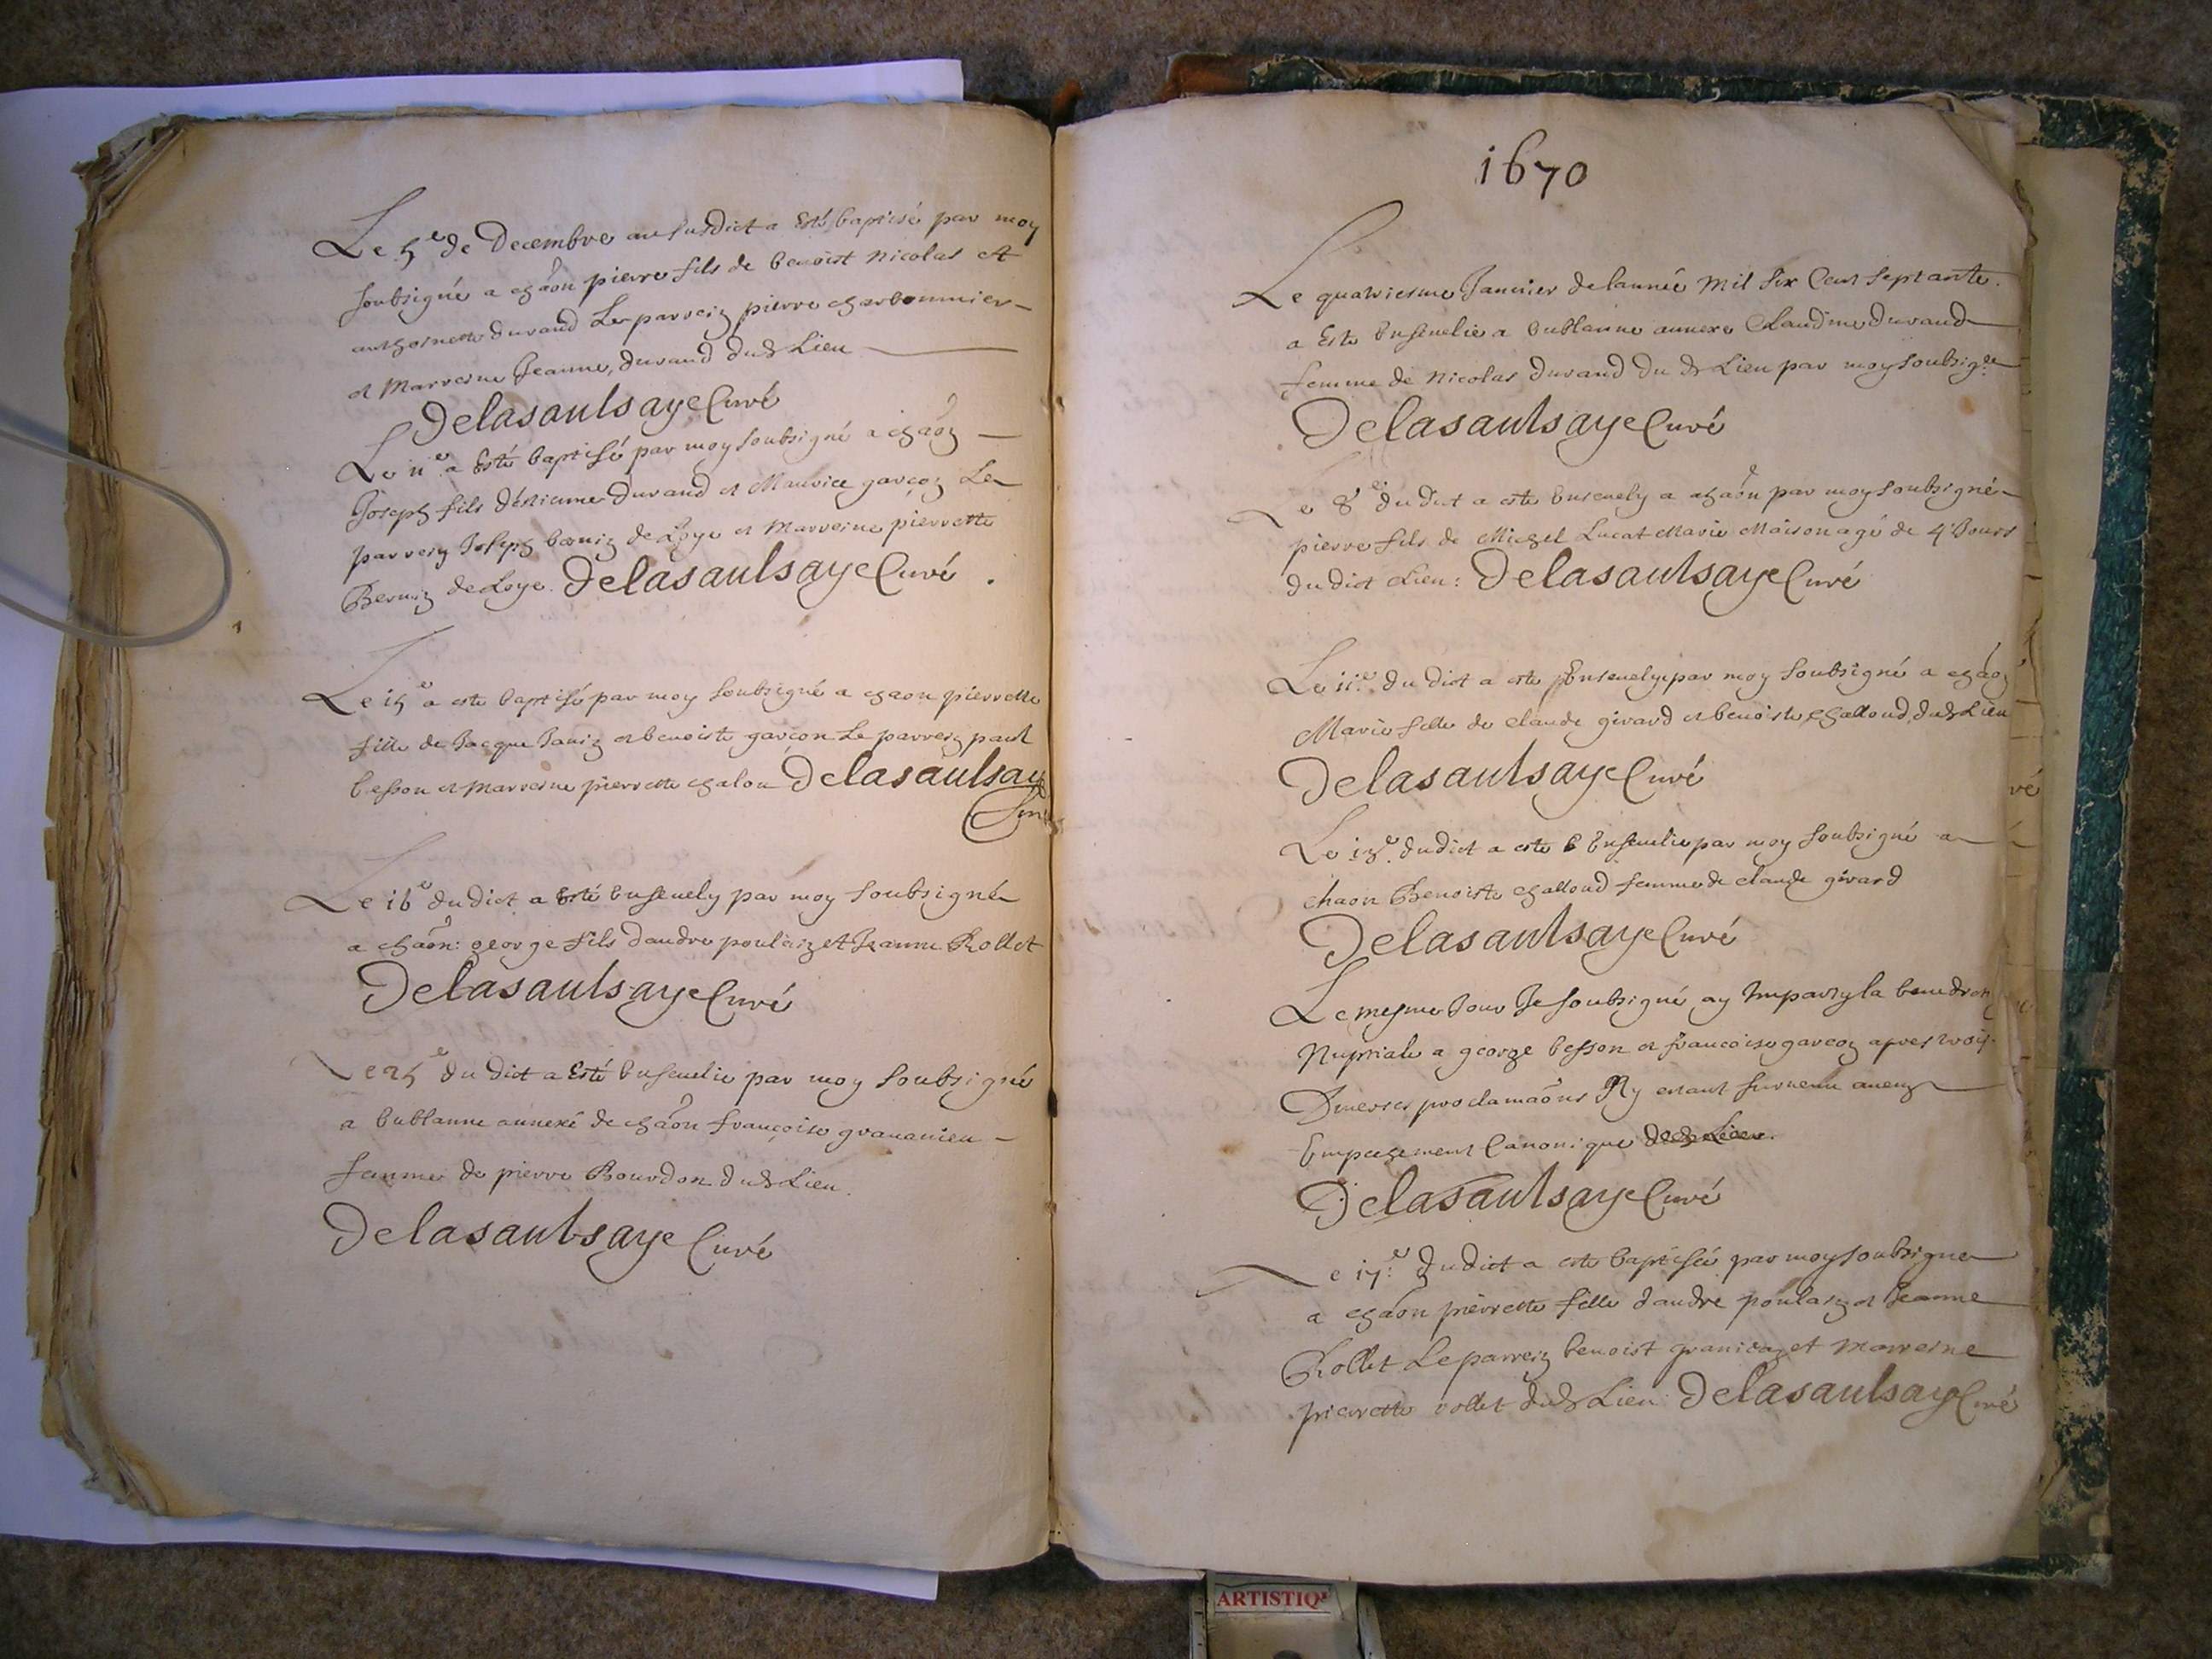 Le 5e de Decembre au susdict a esté baptisé par moy
soubsigné a chãon pierre fils de benoist nicolas et
anthoinette durand Le parrein pierre charbonnier
et Marreine Jeanne durand dud Lieu
Delasaulsaye Curé
Le 11e a Esté baptisé par moy soubsigné a chãon
Joseph fils destienne durand et Maurice garçon Le
parrein Joseph de Loye et Marreine pierrette
de Loye. Delasaulsaye Curé
Le 15e a este baptisé par moy soubsigné a chaon pierrette
fille de Jacque Janin et benoiste garçon Le parrein paul
besson et Marreine pierrette chalon Delasaulsaye
Curé
Le 16e du dict a Esté Ensevely par moy soubsigné
a chãon: george fils dandre poulain et Jeanne Rollet
Delasaulsaye Curé
Le 25e du dict a Esté Ensevelie par moy soubsigné
a bublanne annexe de chãon françoise grananieu
femme de pierre Bourdon dud Lieu.
Delasaulsaye Curé
1670
Le quatriesme Januier de lannée Mil six Cent septante.
a Este Ensevelie a bublanne annexe Claudine durand
femme de Nicolas durand du d Lieu par moy soubsigné
Delasaulsaye Curé
Le 8e du dict a este Ensevely a chãon par moy soubsigné
pierre fils de Michel Lucat Marie Maison agé de 4 Jours
du dict Lieu: Delasaulsaye Curé
Le 11e du dict a este Ensevely par moy soubsigné a chãon
Marie fille de claude girard et benoiste challoud, dud Lieu
Delasaulsaye Curé
Le 13e. du dict a este Ensevelie par moy soubsigné a
chaon Benoiste challoud femme de claude girard
Delasaulsaye Curé
Le mesme Jour Je soubsigné ay Imparty la benediction
Nuptiale a george besson et françoise garçon apres trois
Diverses proclamaõns Ny estant survenu aucung
Empechement Canonique
Delasaulsaye Curé
Le 17e du dict a este baptisée par moy soubsigne
a chãon pierrette fille dandre poulain et Jeanne
Rollet Le parrein benoist et Marreine
pierrette rollet dud Lieu Delasaulsaye Curé
vé
ARTISTIQ